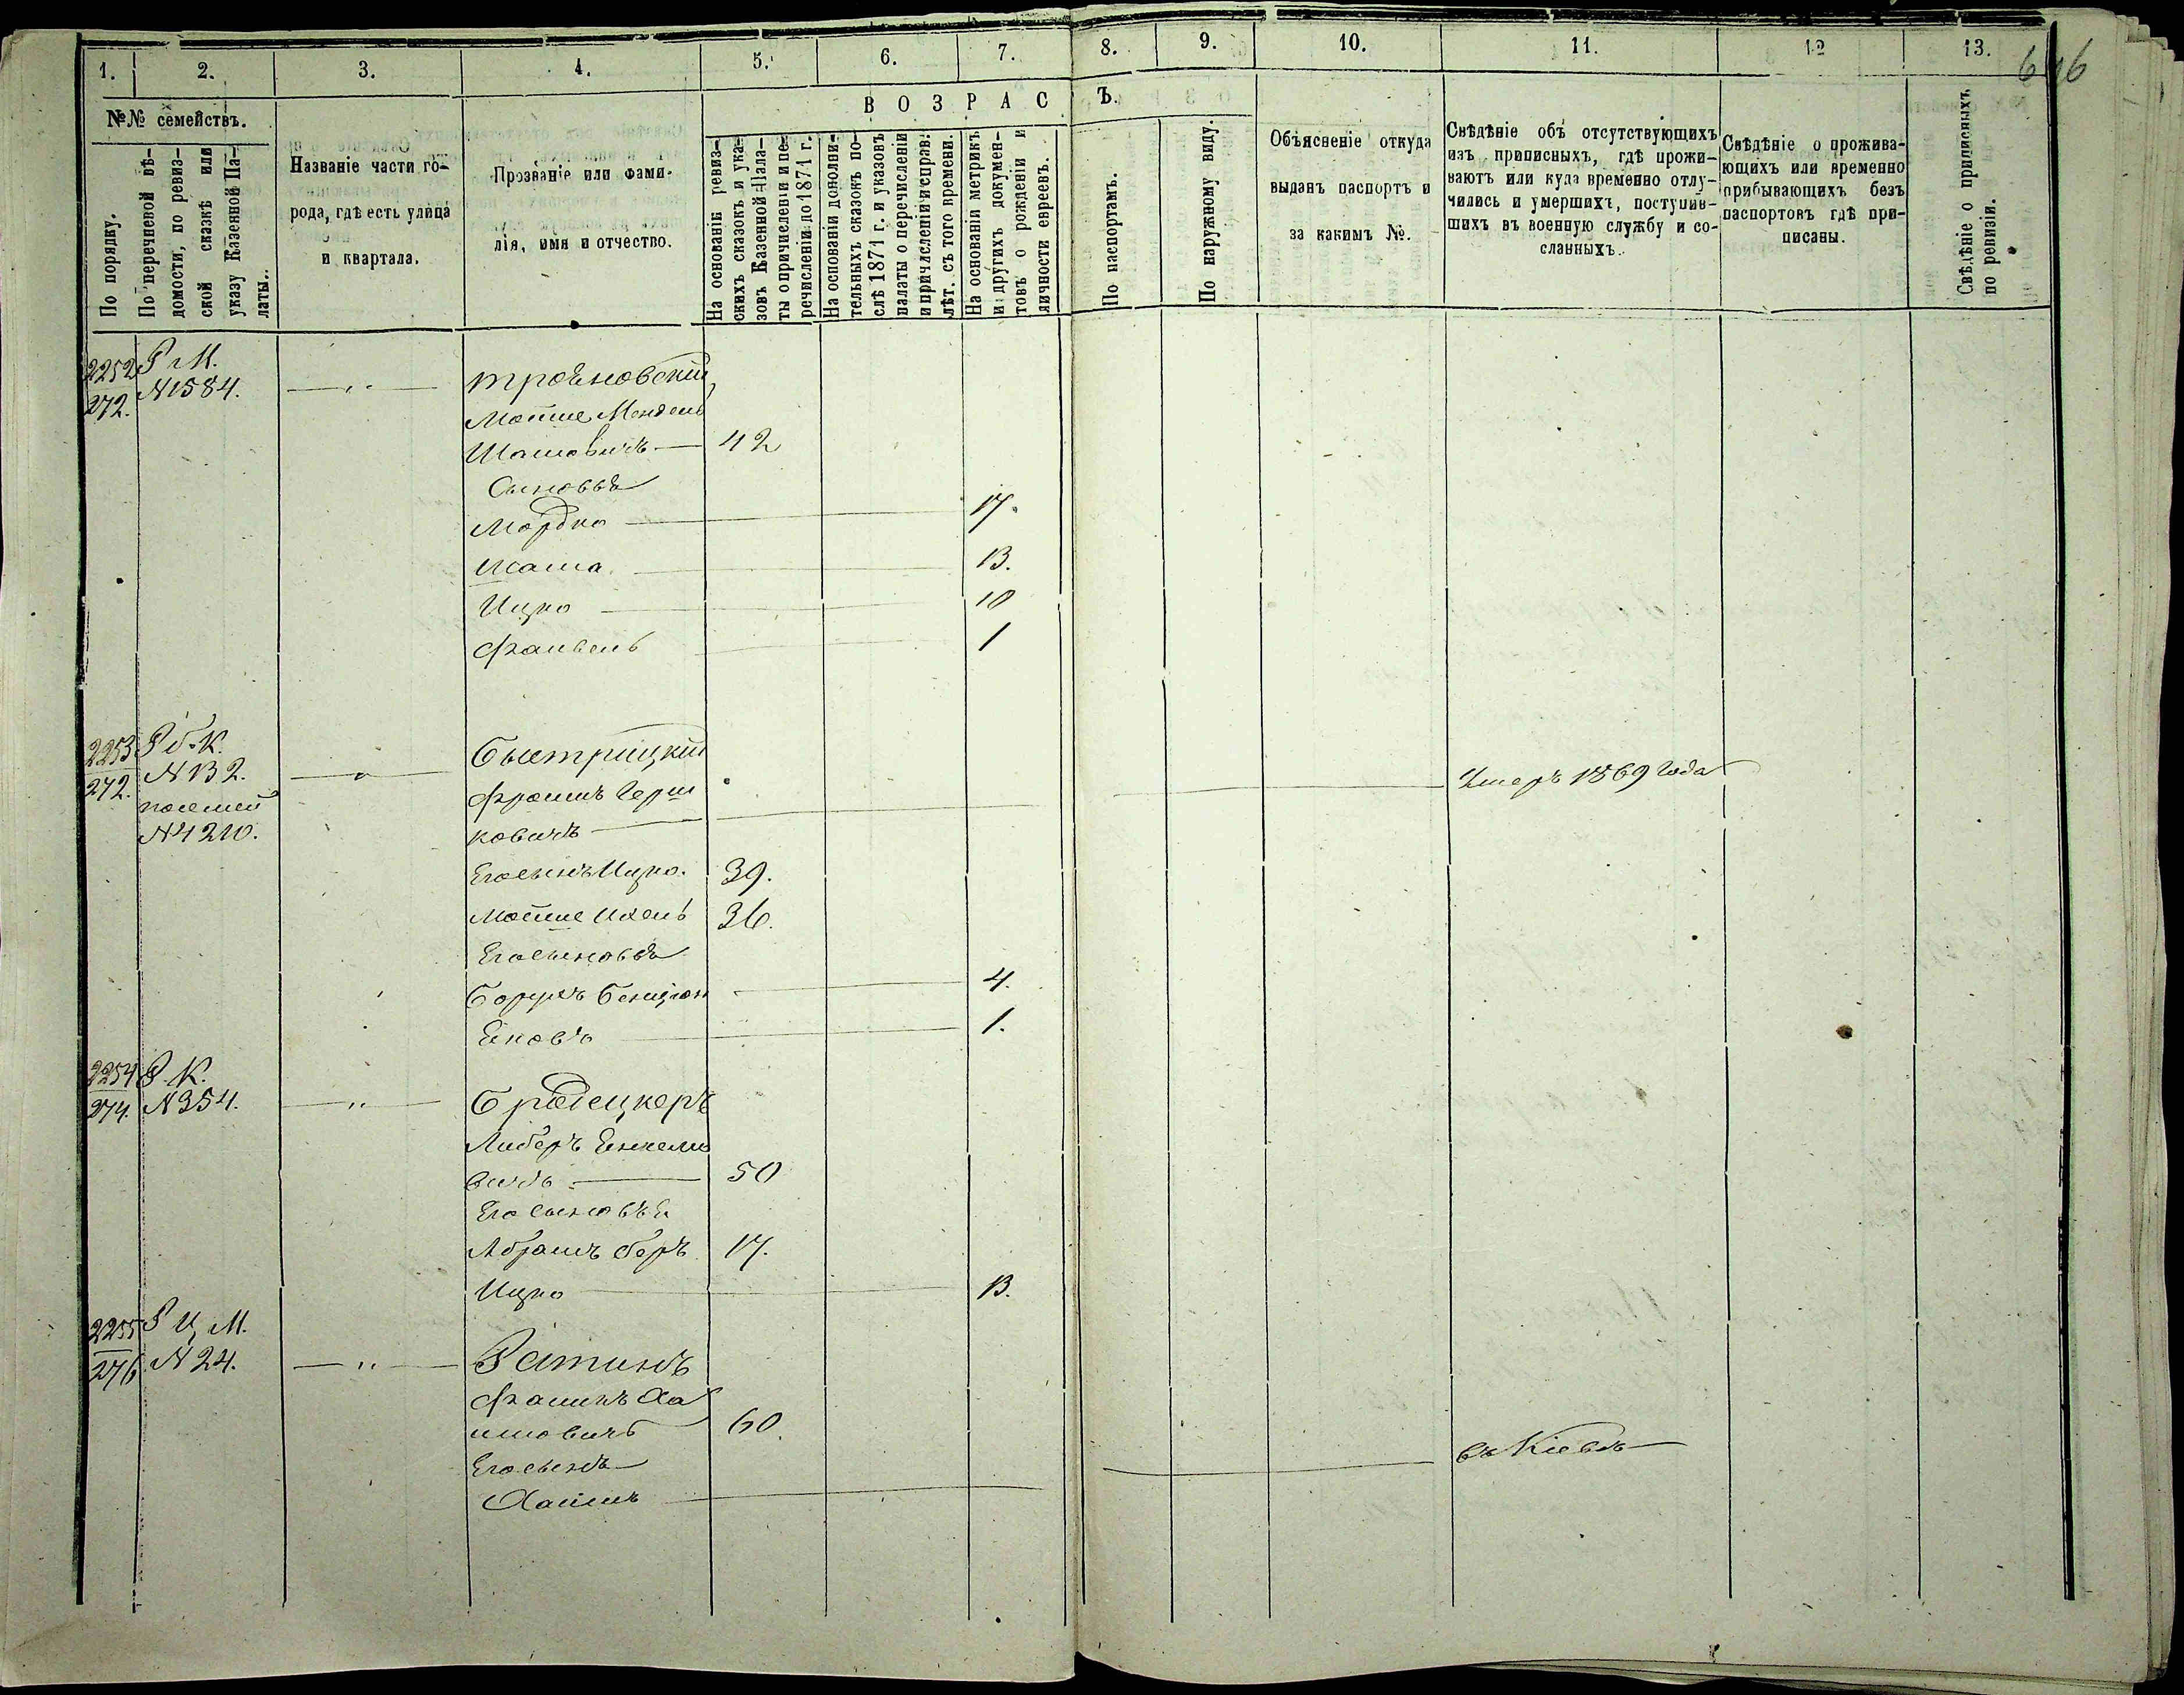 1. 2. 3. 4. 5. 6. 7. 8. 9. 10. 11. 12 13.
646
№№ семействъ.
По порядку.
По перечневой вѣ-
домости, по ревиз-
ской сказкѣ или
указу Казенной Па-
латы.
Названіе части го-
рода, гдѣ есть улица
и квартала.
Прозваніе или фами-
лія, имя и отчество.
ВОЗРАСТЪ.
На основаніи ревиз-
скихъ сказокъ и ука-
зовъ Казенной Пала-
ты о причислени и пе-
речисленіи до 1871 г.
На основаніи дополни-
тельныхъ сказокъ по-
слѣ 1871 г. и указовъ
палаты о перечисленіи
и причисленіи справ:
лѣт. съ того времени.
На основаніи метрикъ
и другихъ докумен-
товъ о рожденіи и
личности евреевъ.
По паспортамъ.
По наружному виду.
Объясненіе откуда
выданъ паспортъ и
за какимъ №.
Свѣдѣніе объ отсутствующихъ
изъ приписныхъ, гдѣ прожи-
ваютъ или куда временно отлу-
чились и умершихъ, поступив-
шихъ въ военную службу и со-
сланныхъ.
Свѣдѣніе о прожива-
ющихъ или временно
прибывающихъ безъ
паспортовъ гдѣ при-
писаны.
Свѣдѣніе о приписныхъ
по ревизіи.
2252 Р М.
272. N1584. Трояновскій,
Мотше Мендель
Шатовичъ 42
Сыновья
Мордко 17.
Шаша 13.
Ицко 10
Файвель 1
2253 Р б. К.
272. N132. Быстрицкій
Фроимъ Герш
N4210.
ковичъ Умеръ 1869 года
Его сынъ Ицко. 39.
Мотше Ихель 36.
Его сыновья
Борухъ Бенціон 4.
Яновъ 1.
2254 Р. К.
274. N354. Бродецкеръ
Либеръ Янкеле
вичъ 50
Его сыновья
Абрамъ Беръ 17.
Ицко 13.
2255 Р Ц М.
276 N24. Рътинъ
Фаликъ Ха
имовичъ 60.
Его сынъ
Хаимъ въ Кіевѣ